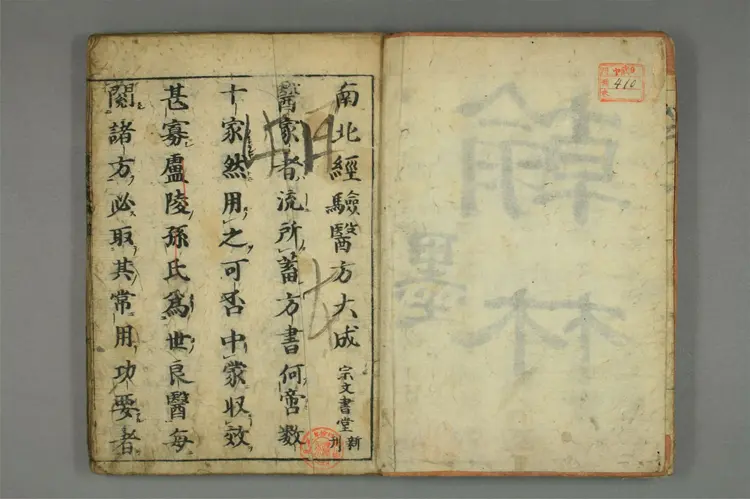 410
南北經驗醫方大成 宗文書堂 新刊
醫家者流所蓄方書何啻數
十家然用之可否中蒙收效
甚寡盧陵孫氏爲世良醫每
閱諸方必取其常用功要者